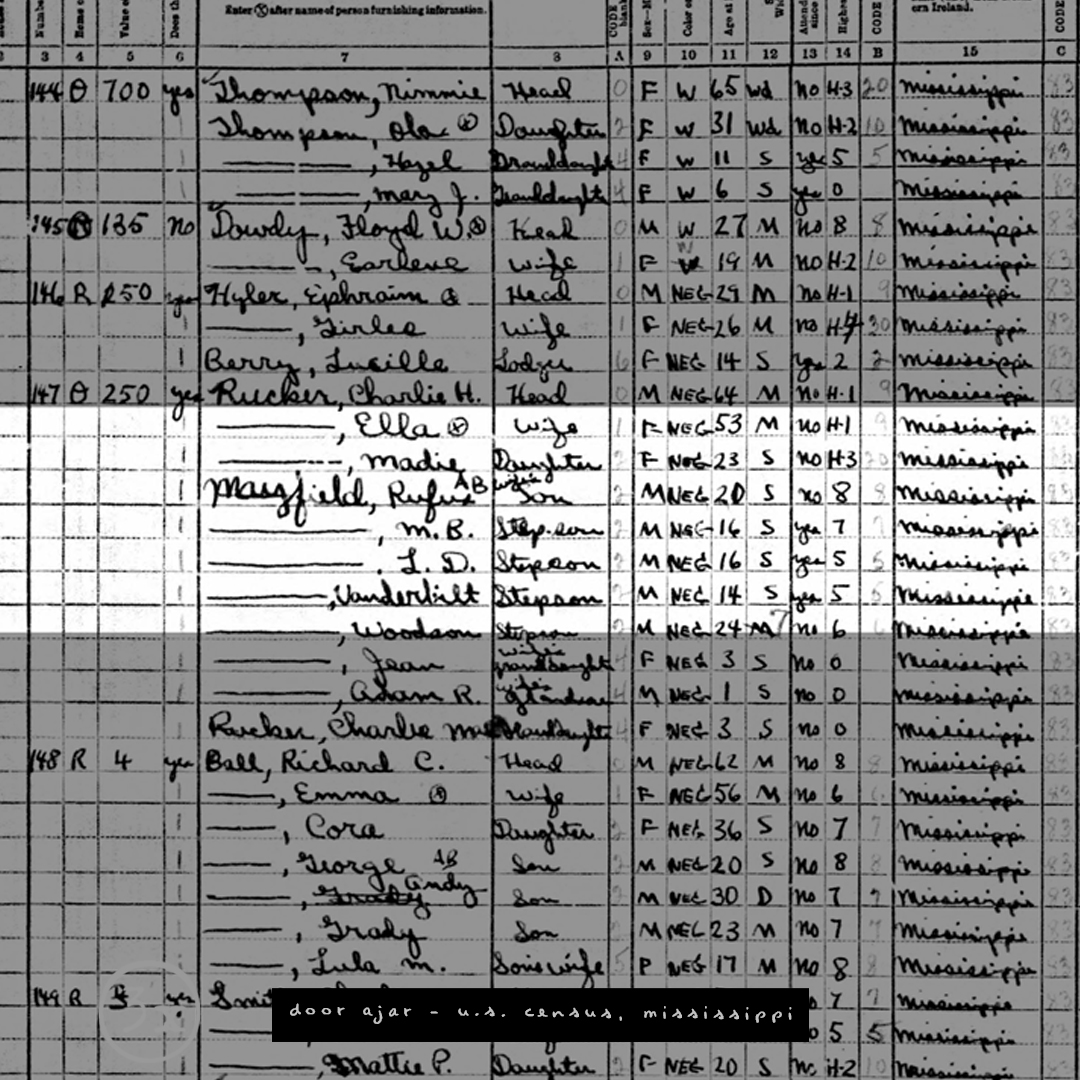 Enter Ⓧ after name of person furnishing information. ern Ireland.
3 4 5 6 7 8 A 9 10 11 12 13 14 B 15 C
144 O 700 yes Thompson, Nimmie Head 0 F W 65 Wd no H-3 20 Mississippi 83
Thompson, Ola Ⓧ Daughter 2 F W 31 Wd no H-2 10 Mississippi 83
——, Hazel Granddaught 4 F W 11 S yes 5 5 Mississippi 83
——, Mary J. Granddaughte 4 F W 6 S yes 0 Mississippi 83
145 135 no Dowdy, Floyd W. Ⓧ Head 0 M W 27 M no 8 8 Mississippi 83
——, Earlene wife 1 F W 19 M no H-2 10 Mississippi 83
146 R 250 yes Hyler, Ephraim Head 0 M NEG 29 M no H-1 9 Mississippi 83
——, wife 1 F NEG 26 M no H-4 30 Mississippi 83
Berry, Lucille Lodger 6 F NEG 14 S yes 2 2 Mississippi 83
147 O 250 yes Rucker, Charlie H. Head 0 M NEG 64 M no H-1 9 Mississippi 83
——, Ella Ⓧ wife 1 F NEG 53 M no H-1 9 Mississippi 83
——, Madie Daughter 2 F NEG 23 S no H-3 Mississippi
Mayfield, Rufus AB wife's Son 2 M NEG 20 S no 8 8 Mississippi
——, M.B. Stepson 2 M NEG 16 S yes 7 7 Mississippi
——, L. D. Stepson 2 M NEG 16 S yes 5 5 Mississippi
——, Vanderbilt Stepson 2 M NEG 14 S yes 5 Mississippi
——, Woodson Stepson 2 M NEG 24 M 7 no 6 6 Mississippi
——, Jean wife's granddaught 4 F NEG 3 S no 0 Mississippi 83
——, Adam R. wife's 4 M NEG 1 S no 0 Mississippi 83
Rucker, Charlie Granddaughte 4 F NEG 3 S no 0 Mississippi 83
148 R 4 yes Ball, Richard C. Head 0 M NEG 62 M no 8 8 Mississippi 83
——, Emma Ⓧ wife 1 F NEG 56 M no 6 6 Mississippi 83
——, Cora Daughter 2 F NEG 36 S no 7 7 Mississippi 83
——, George AB Son 2 M NEG 20 S no 8 8 Mississippi 83
——, Grady Andy Son 2 M NEG 30 D no 7 7 Mississippi 83
——, Grady Son M NEG 23 M no 7 7 Mississippi 83
——, Lula M. Son's wife 5 F NEG 17 M no 8 8 Mississippi 83
149 R yes 7 7 Mississippi 83
door ajar - u.s. census, mississippi
5 5 Mississippi 83
——, Mattie P. Daughter 2 F NEG 20 S no H-2 10 Mississippi 83